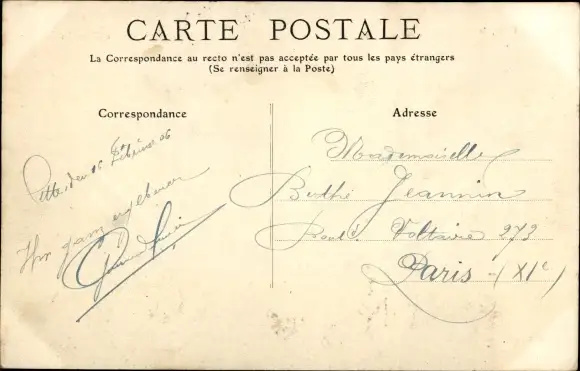 CARTE POSTALE
La Correspondance au recto n'est pas acceptée par tous les pays étrangers
(Se renseigner à la Poste)
Correspondance
Adresse
Mademoiselle
Berthe Jeannin
Bould. Voltaire 273
Paris - (XIe)
den 16 06